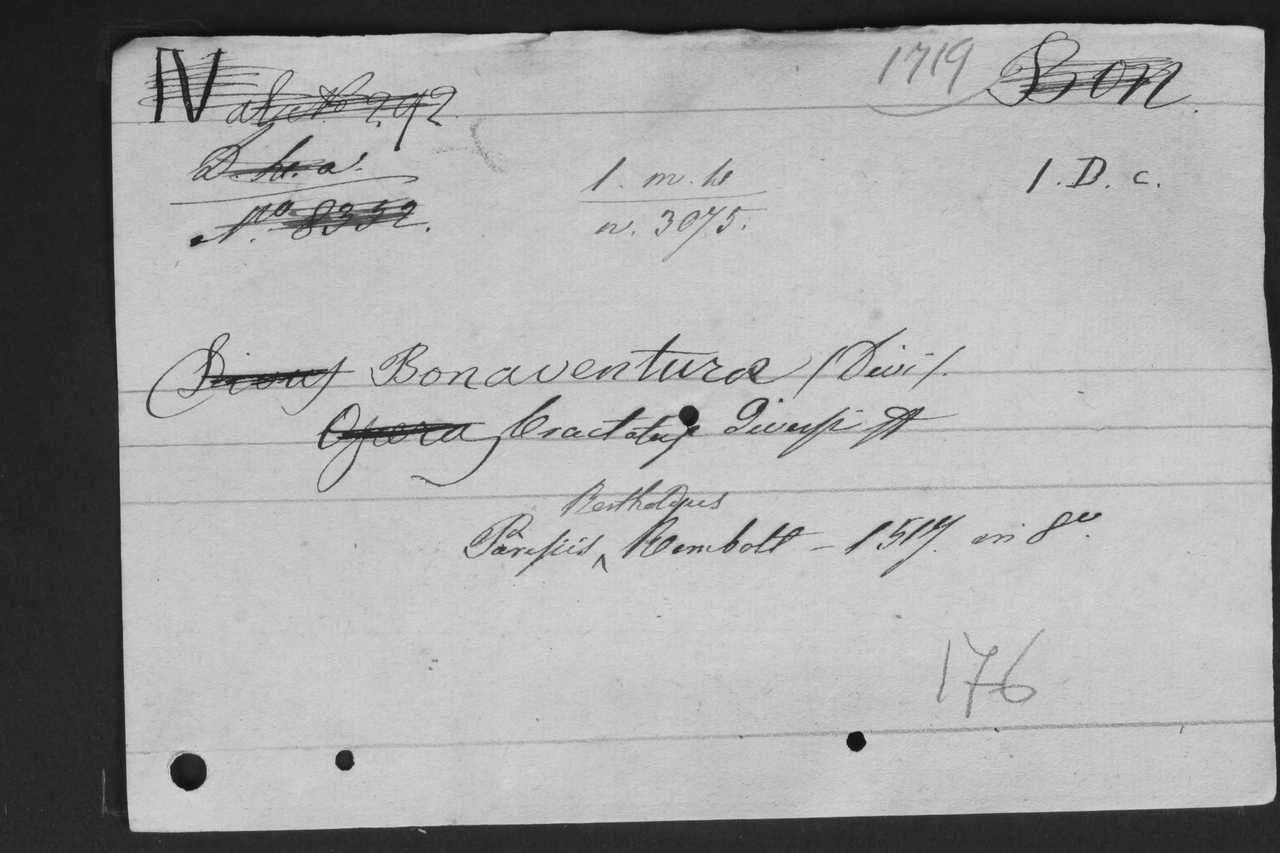 IV 1719 Bon.
292.
D. h. a. 1. m. h 1. D. c.
No. 8352. n. 3075.
Divus Bonaventura (Divi).
Opera, tractatus Diversi
Bertholdus
Parisiis Rembolt - 1517. in 8vo.
176